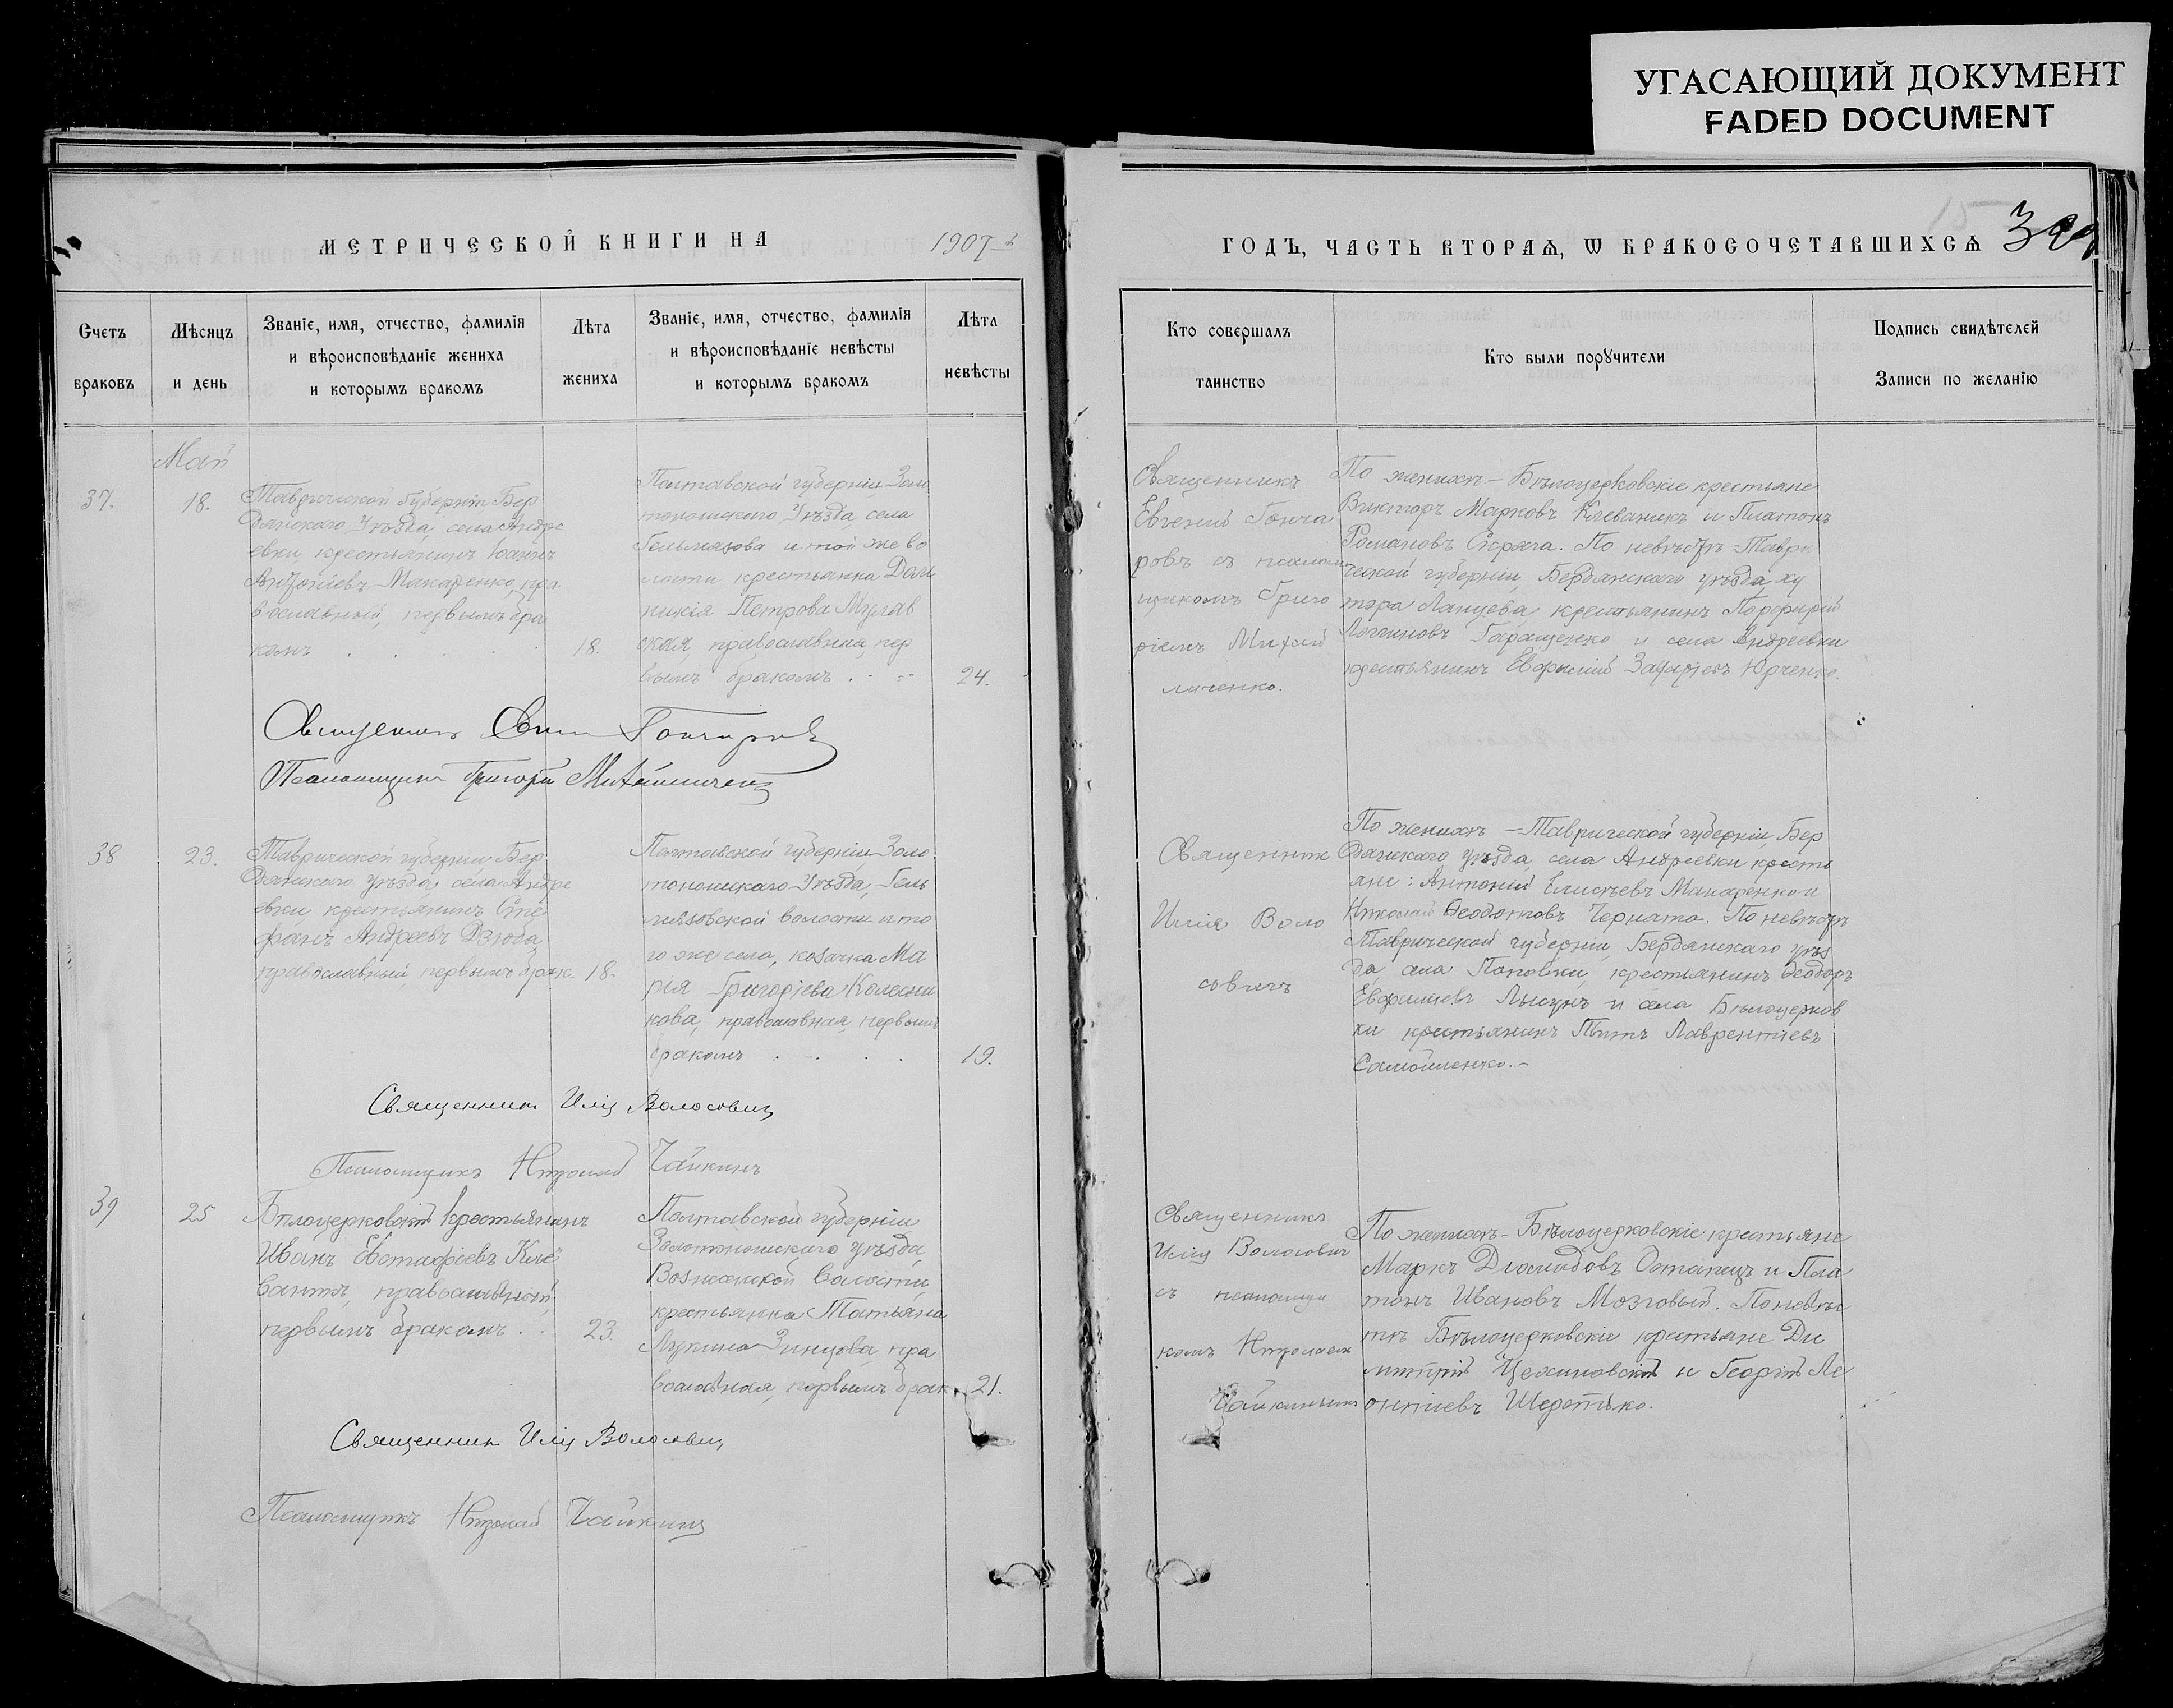 УГАСАЮЩИЙ ДОКУМЕНТ
FADED DOCUMENT
МЕТРИЧЕСКОЙ КНИГИ НА 1907
Счетъ браковъ
Мѣсяцъ и день
Званіе, имя, отчество, фамилія
и вѣроисповѣданіе жениха
и которымъ бракомъ
Лѣта жениха
Званіе, имя, отчество, фамилія
и вѣроисповѣданіе невѣсты
и которымъ бракомъ
Лѣта невѣсты
Май
37.
18.
Таврической губерніи Бер
дянскаго уѣзда, села Андре
евки крестьянинъ Іоаннъ
Антоніевъ Макаренко, пра
вославный, первымъ бра
комъ
18.
Полтавской губерніи Золо
тоношскаго уѣзда села
Гельмязова и той же во
лости крестьянка Дом
никія Петрова
православная, пер
вымъ бракомъ
24.
Священникъ Гончаровъ
Псаломщикъ Григорій Михайличенко
38
23.
Таврической губерніи, Бер
дянскаго уѣзда, села Андре
евки крестьянинъ Сте
фанъ Андреевъ Дзюба,
православный, первымъ брак.
18.
Полтавской губерніи Золо
тоношскаго уѣзда, Гель
мязовской волости и то
го же села, козачка Ма
рія Григоріева Колесни
кова, православная, первымъ
бракомъ
19.
Священникъ Илія Волосовичъ
Псаломщикъ Николай Чайкинъ
39
25
Бѣлоцерковскій крестьянинъ
Иванъ Евстафіевъ Кле
православный,
первымъ бракомъ
23.
Полтавской губерніи
Золотоношскаго уѣзда,
Вознесенской волости,
крестьянка Татьяна
Лукина Зинцова, пра
вославная, первымъ брак.
21.
Священникъ Илія Волосовичъ
Псаломщикъ Николай Чайкинъ
ГОДЪ, ЧАСТЬ ВТОРАѦ, Ѡ БРАКОСОЧЕТАВШИХСѦ
Кто совершалъ таинство
Кто были порꙋчители
Подпись свидѣтелей
Записи по желанію
Священникъ
Евгеній Гонча
ровъ съ псалом
щикомъ Григо
ріемъ Михай
личенко.
По женихѣ – Бѣлоцерковскіе крестьяне
Викторъ Марковъ Клеваникъ и Платонъ
Романовъ Скряга. По невѣстѣ – Таври
ческой губерніи, Бердянскаго уѣзда, ху
тора крестьянинъ Порфирій
Логгиновъ Геращенко и села Андреевки
крестьянинъ Евфимій Захаріевъ Юрченко.
Священникъ
Илія Воло
совичъ
По женихѣ – Таврической губерніи, Бер
дянскаго уѣзда села Андреевки кресть
яне: Антоній Елисѣевъ Макаренко и
Николай Ѳеодотовъ Чернята. По невѣстѣ
Таврической губерніи, Бердянскаго уѣз
да, села Поповки, крестьянинъ Ѳеодоръ
Евфиміевъ Лысунъ и села Бѣлоцерков
ки крестьянинъ Титъ Лаврентіевъ
Самойленко. –
Священникъ
Илія Волосовичъ
съ псаломщи
комъ Николаемъ
Чайкинымъ
По женихѣ – Бѣлоцерковскіе крестьяне
Маркъ Діомидовъ Остапецъ и Пла
тонъ Ивановъ Мозговый. По невѣс
тѣ Бѣлоцерковскіе крестьяне Ди
митрій Цехиновскій и Георгій Ле
онтіевъ Шеретько.